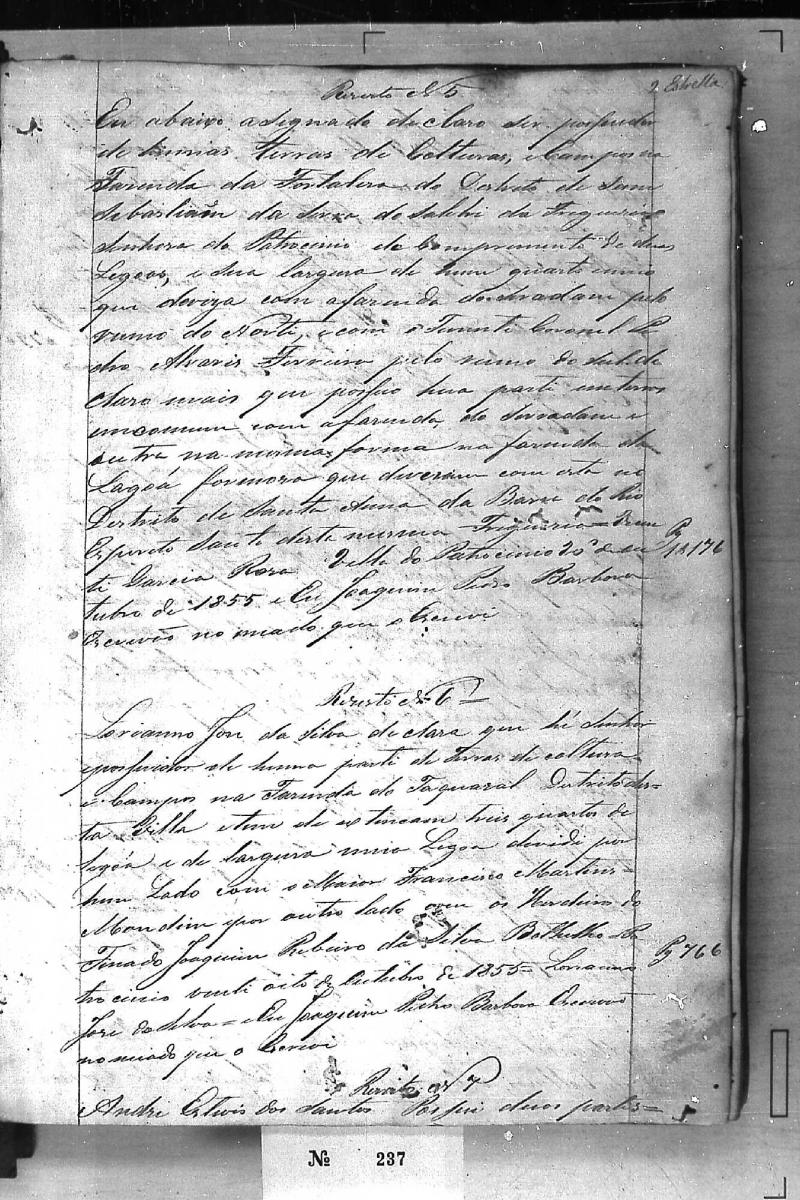 2 Estrella
Rezisto N 5
Eu abaixo asignado declaro ser posuidor
de minias terras de Colturas, e Campos na
Fazenda da Fortaleza do Destrito de Sam
Sebastiam da Serra do Salitri da Freguezia
Senhora do Patrocinio de Comprimento de duas
Legoas, e sua largura de hum quarto
que deviza com afazenda do pelo
rumo do Norte, e com o Tenente Coronel Pe
dro Alvaris Ferreira pelo rumo do Sul de
claro mais que posuo hua parte em terras
emcomum com afazenda do e
outra na mesma forma na fazenda da
Lagoa formoza que com esta no
Destrito de Santa Anna da Barra do Rio
Espirito Santo desta mesma Freguezia =
te Garcia Roza Villa do Patrocinio 20 de ou
tubro de 1855 e Eu Joaquim Pedro Barboza
Escrivão nomiado que o Escrevi
Pg
18176
Rezisto N 6
José da Silva declara que hé Senhor
eposuidor de huma parte de terras de coltura
e Campos na Fazenda do Taquaral Destrito des=
ta Villa etem de extincam tres quartos de
legôa e de largura uma Legoa devide por
hum Lado com o Maior Francisco Martins
Mondim epor outro lado com os Herdeiros do
Finado Joaquim Ribeiro da Silva Botelho = Pa
trocinio vinti oito de Outubro de 1855 =
José da Silva = e Eu Joaquim Pedro Barboza Escrivão
nomiado que o Escrevi
Pg 766
Rezisto N 7
Andre Estevis dos Santos Posui duas partes =
Nº 237